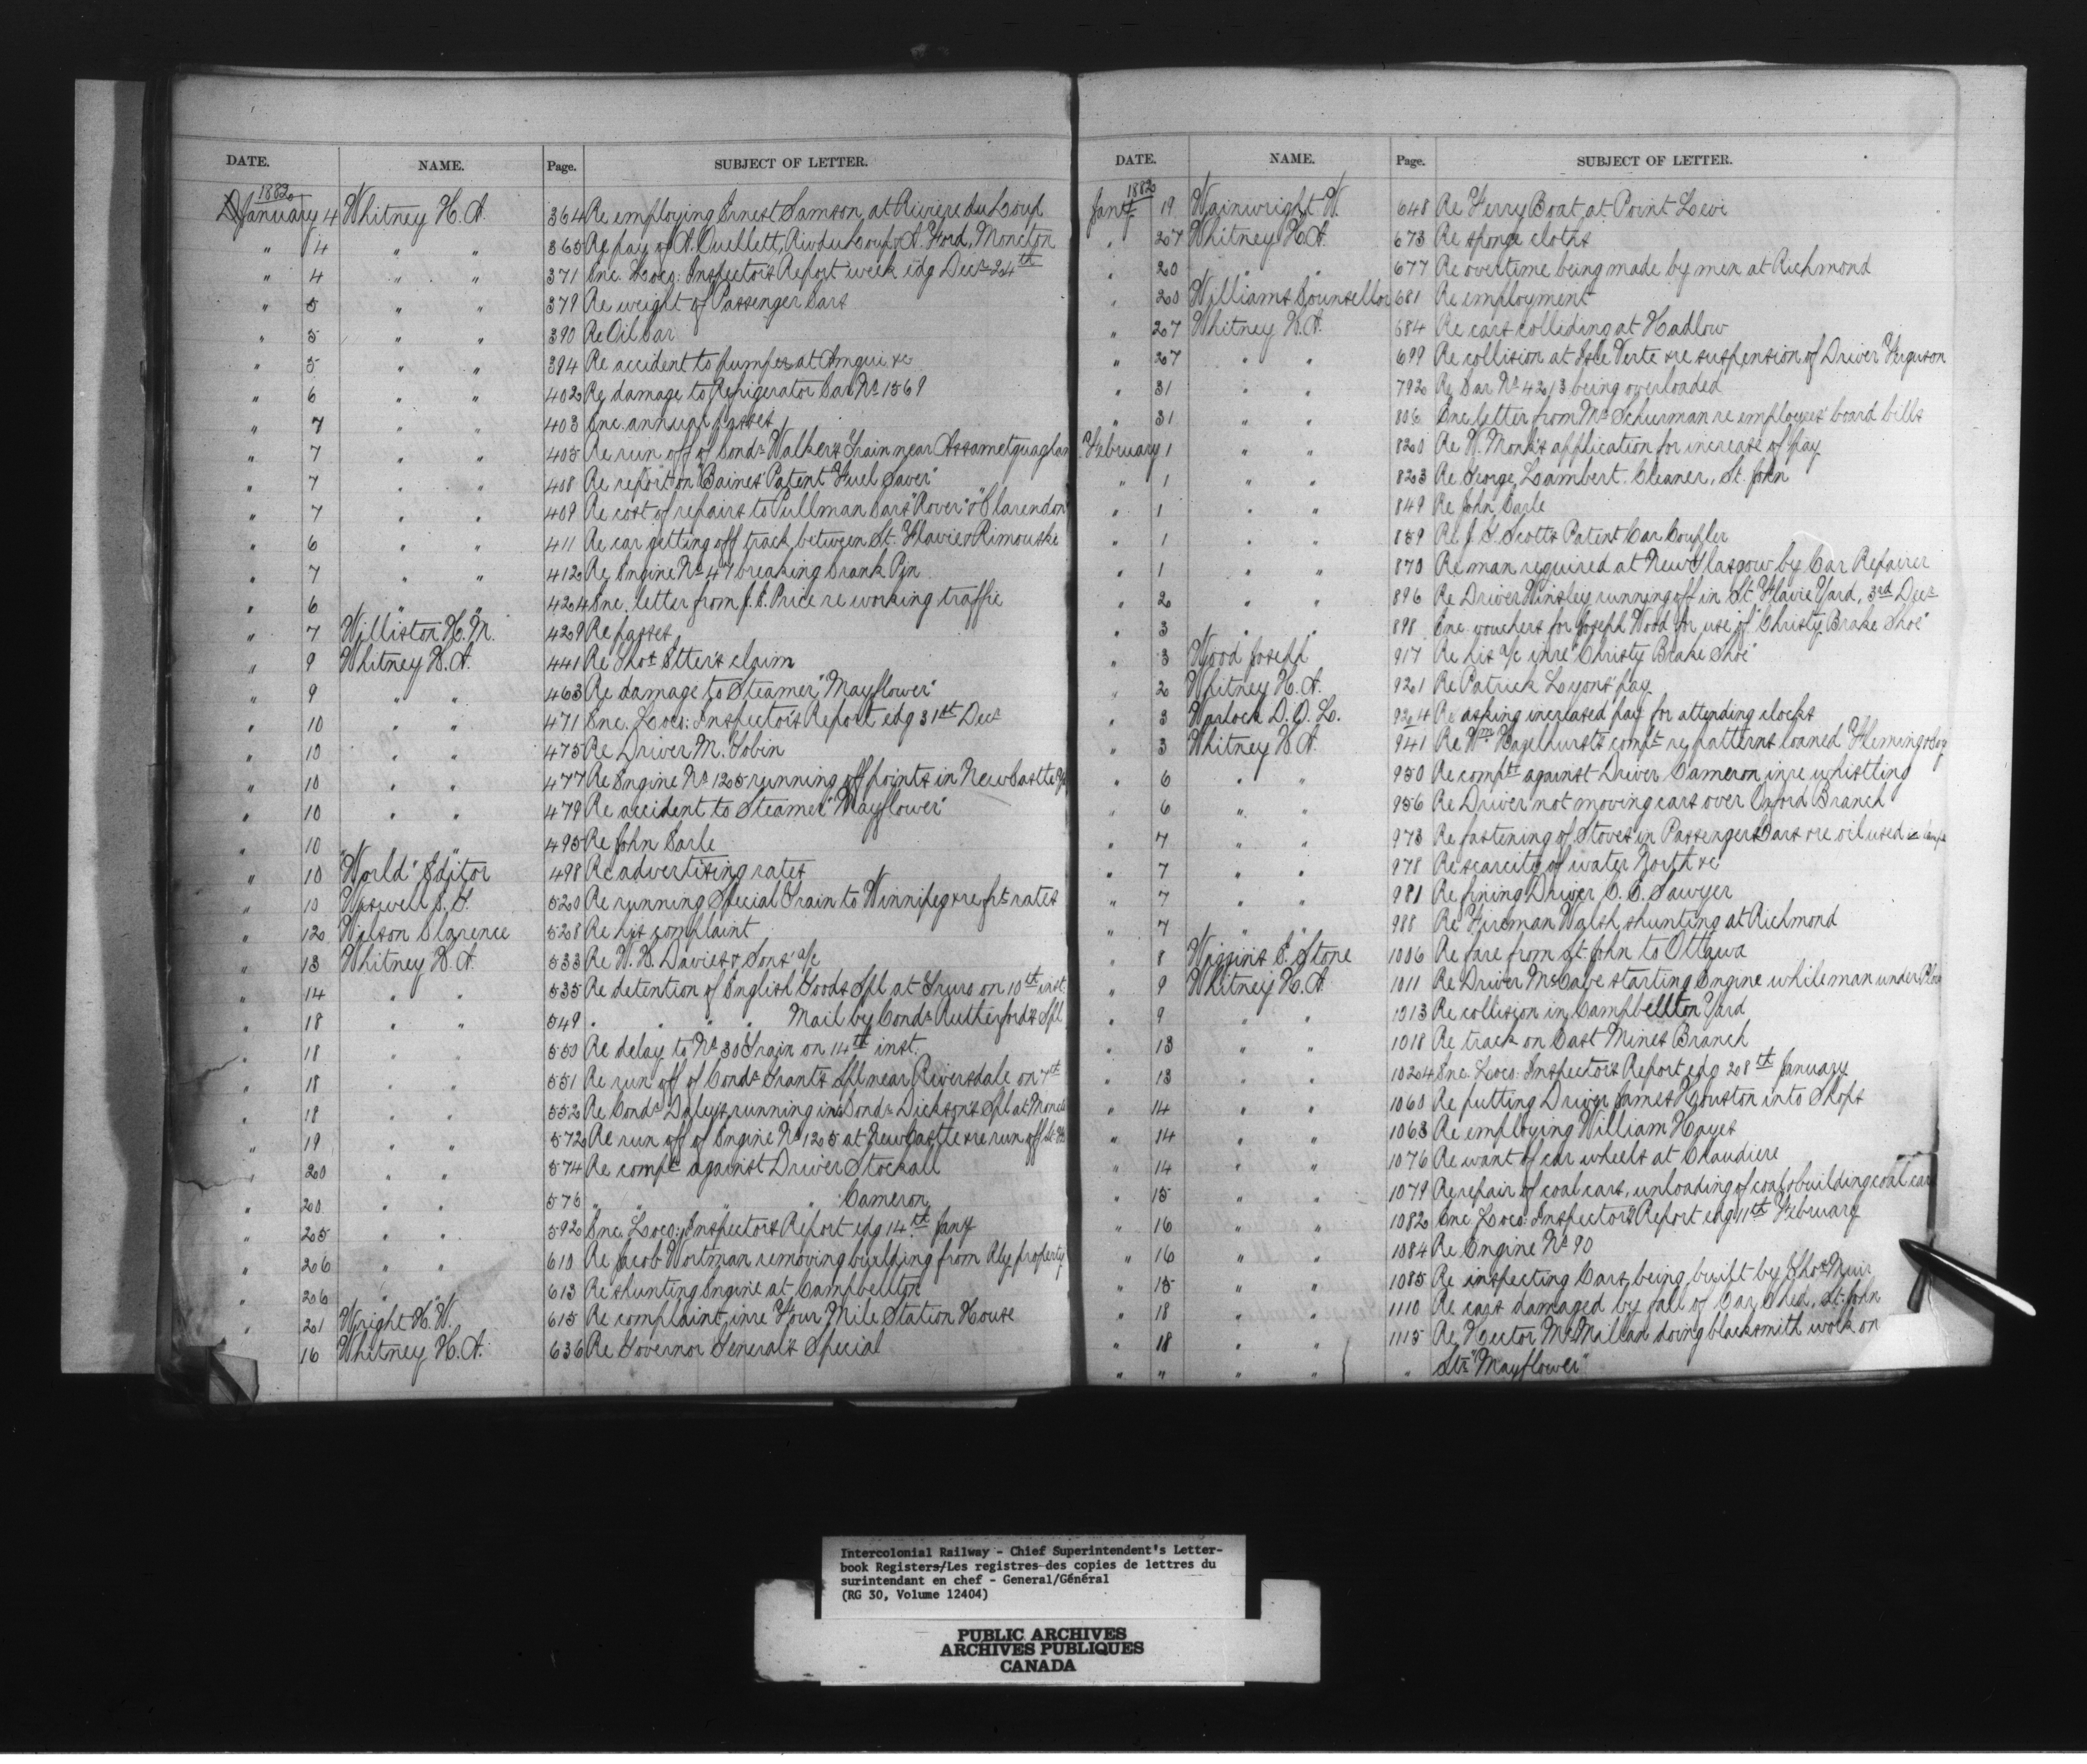 DATE. NAME. Page. SUBJECT OF LETTER.
1882
January 4 Whitney H. A. 364 Re employing Ernest Samson at Riviere du Loup
" 4 " " 365 Re pay of A. Ouellett, Riv du Loup & A. Ford, Moncton
" 4 " " 371 Enc. Loco: Inspector's Report week edg Decr 24th
" 5 " " 379 Re weight of Passenger Cars
" 5 " " 390 Re Oil Car
" 5 " " 394 Re accident to pumper at Amqui &c
" 6 " " 402 Re damage to Refrigerator Car No 1569
" 7 " " 403 Enc annual passes
" 7 " " 405 Re run off of Condr Walker's Train near Assametquaghan
" 7 " " 408 Re report on "Baines' Patent Fuel Saver"
" 7 " " 409 Re cost of repairs to Pullman Cars "Rover" & "Clarendon"
" 6 " " 411 Re car getting off track between St. Flavie & Rimouski
" 7 " " 412 Re Engine No 47 breaking Crank Pin
" 6 " " 424 Enc. letter from J. E. Price re working traffic
" 7 Williston H. M. 429 Re passes
" 9 Whitney H. A. 441 Re Thos Etter's claim
" 9 " " 463 Re damage to Steamer "Mayflower"
" 10 " " 471 Enc. Loco: Inspector's Report edg 31st Decr
" 10 " " 475 Re Driver M. Tobin
" 10 " " 477 Re Engine No 125 running off points in NewCastle Yd
" 10 " " 479 Re accident to Steamer "Mayflower"
" 10 " " 495 Re John Earle
" 10 "World" Editor 498 Re advertising rates
" 10 520 Re running Special Train to Winnipeg & re frt rates
" 12 Wilson Clarence 528 Re his complaint
" 13 Whitney H. A. 533 Re W. H. Davies & Sons' a/c
" 14 " " 535 Re detention of English Goods Spl at Truro on 10th inst.
" 18 " " 549 " " " " Mail by Condr Rutherford's Spl
" 18 " " 550 Re delay to No 30 Train on 14th inst.
" 18 " " 551 Re run off of Condr Grant's Spl near Riversdale on 7th
" 18 " " 552 Re Condr Daley's running into Condr Dickson's Spl at Moncton
" 19 " " 572 Re run off of Engine No 125 at NewCastle & re run off
" 20 " " 574 Re compt against Driver Stockall
" 20 " " 576 " " " " Cameron
" 25 " " 592 Enc. Loco: Inspector's Report edg 14th Jany
" 26 " " 610 Re Jacob Wortman removing building from Rly property
" 26 " " 613 Re shunting Engine at Campbellton
" 21 Wright H. W. 615 Re complaint inre Four Mile Station House
" 16 Whitney H. A. 636 Re Governor General's Special
DATE. NAME. Page. SUBJECT OF LETTER.
1882
Jany 19 Wainwright W. 648 Re Ferry Boat at Point Levi
" 27 Whitney H. A. 673 Re sponge cloths
" 20 " " 677 Re overtime being made by men at Richmond
" 20 Williams Counsellor 681 Re employment
" 27 Whitney H. A. 684 Re cars colliding at Hadlow
" 27 " " 699 Re collision at Isle Verte & re suspension of Driver Ferguson
" 31 " " 792 Re Car No 4213 being overloaded
" 31 " " 806 Enc letter from Mr Schurman re employees' board bills
February 1 " " 820 Re W. Monk's application for increase of pay
" 1 " " 823 Re George Lambert. Cleaner, St. John
" 1 " " 849 Re John Earle
" 1 " " 859 Re J. S. Scott's Patent Car Coupler
" 1 " " 870 Re man required at New Glasgow by Car Repairer
" 2 " " 896 Re Driver Hinsley running off in St. Flavie Yard, 3rd Decr
" 3 " " 898 Enc vouchers for Joseph Wood for use of "Christy Brake Shoe"
" 3 Wood Joseph 917 Re his a/c inre "Christy Brake Shoe"
" 2 Whitney H. A. 921 Re Patrick Lyons' pay
" 3 Warlock D. O. L. 924 Re asking increased pay for attending clocks
" 3 Whitney H. A. 941 Re Wm Hazelhurst's compt re patterns loaned Fleming & Son
" 6 " " 950 Re compt against Driver Cameron inre whistling
" 6 " " 956 Re Driver not moving cars over Oxford Branch
" 7 " " 973 Re fastening of Stoves in Passenger Cars & re oil used in lamps
" 7 " " 978 Re scarcity of water North &c
" 7 " " 981 Re fining Driver C. E. Sawyer
" 7 " " 988 Re Fireman Walsh, shunting at Richmond
" 8 Wiggins E. Stone 1006 Re fare from St. John to Ottawa
" 9 Whitney H. A. 1011 Re Driver McCabe starting Engine while man under
" 9 " " 1013 Re collision in Campbellton Yard
" 13 " " 1018 Re track on East Mines Branch
" 13 " " 1024 Enc. Loco: Inspector's Report edg 28th January
" 14 " " 1060 Re putting Driver James Houston into Shops
" 14 " " 1063 Re employing William Hayes
" 14 " " 1076 Re want of car wheels at Chaudiere
" 15 " " 1079 Re repair of coal cars, unloading of coal & building coal cars
" 16 " " 1082 Enc Loco: Inspector's Report edg 11th February
" 16 " " 1084 Re Engine No 90
" 15 " " 1085 Re inspecting Cars being built by Thos Muir
" 18 " " 1110 Re cars damaged by fall of Car Shed, St. John
" 18 " " 1115 Re Hector McMillan doing blacksmith work on
" " " " " Str "Mayflower"
Intercolonial Railway - Chief Superintendent's Letter-
book Registers/Les registres des copies de lettres du
surintendant en chef - General/Général
(RG 30, Volume 12404)
PUBLIC ARCHIVES
ARCHIVES PUBLIQUES
CANADA